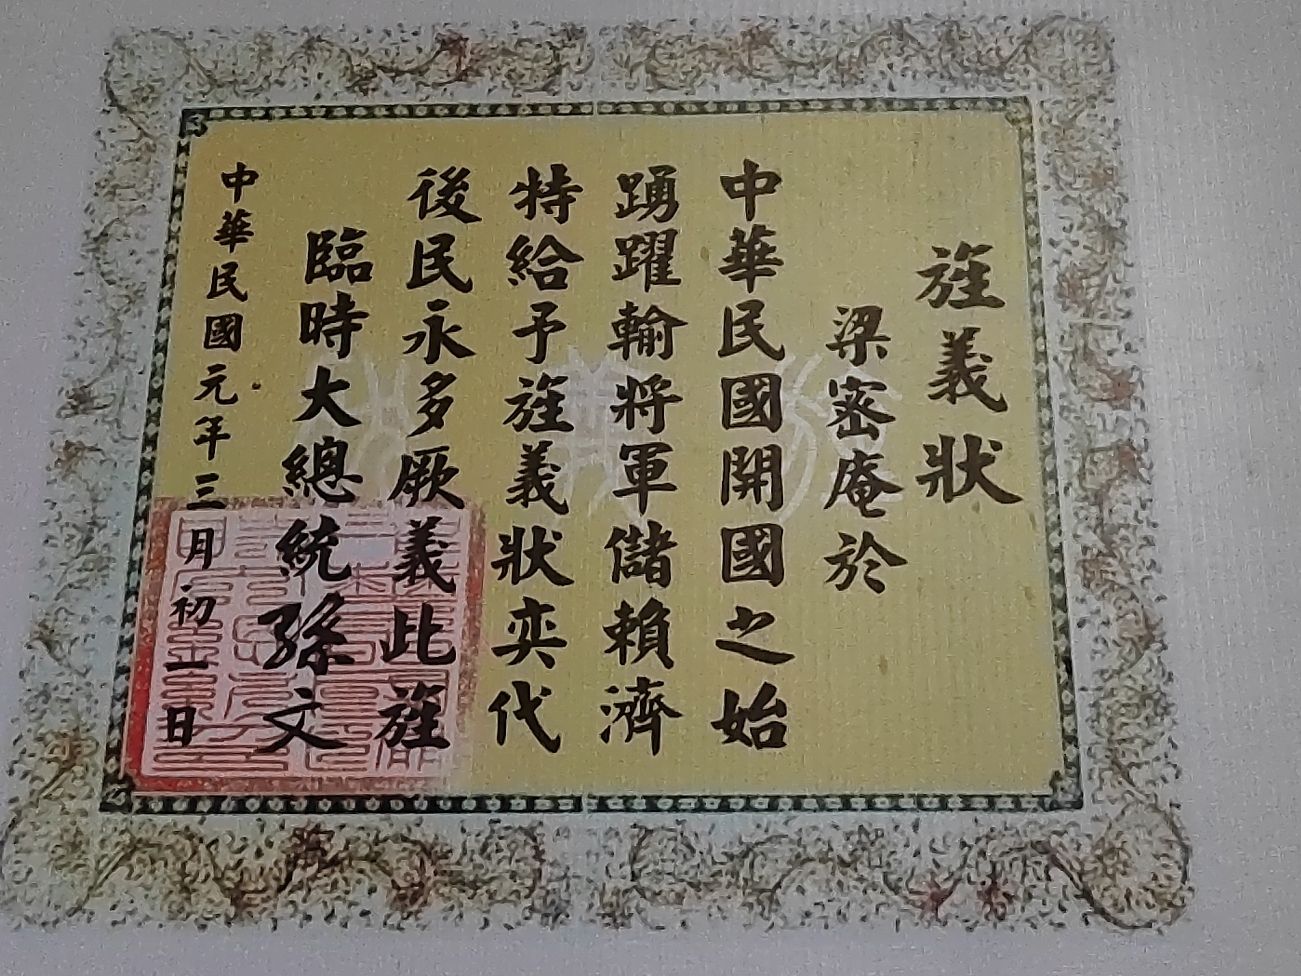 旌義狀
梁密庵於
中華民國開國之始
踴躍輸將軍儲賴濟
特給予旌義狀奕代
後民永多厥義此旌
臨時大總統孫文
中華民國元年三月初一日